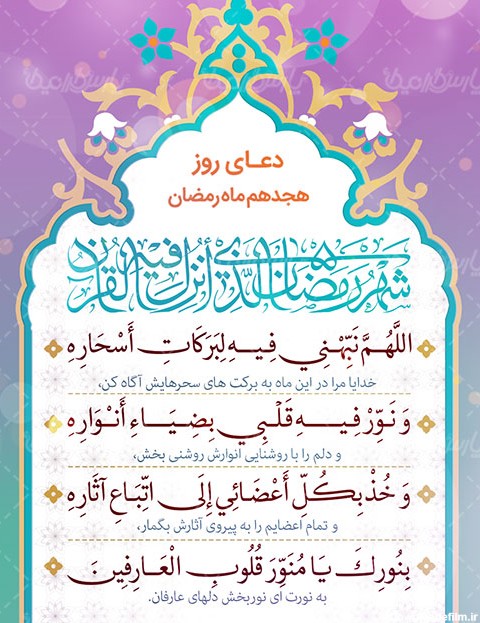 دعـای روز
هجدهم ماه رمضان
شهر رمضان الذي أنزل فيه القرآن
اللَّهُمَّ نَبِّهْنِي فِيهِ لِبَرَكَاتِ أَسْحَارِهِ
خدایا مرا در این ماه به برکت های سحرهایش آگاه کن،
وَ نَوِّرْ فِيهِ قَلْبِي بِضِيَاءِ أَنْوَارِهِ
و دلم را با روشنایی انوارش روشنی بخش،
وَ خُذْ بِكُلِّ أَعْضَائِي إِلَى اتِّبَاعِ آثَارِهِ
و تمام اعضایم را به پیروی آثارش بگمار،
بِنُورِكَ يَا مُنَوِّرَ قُلُوبِ الْعَارِفِينَ
به نورت ای نوربخش دلهای عارفان.